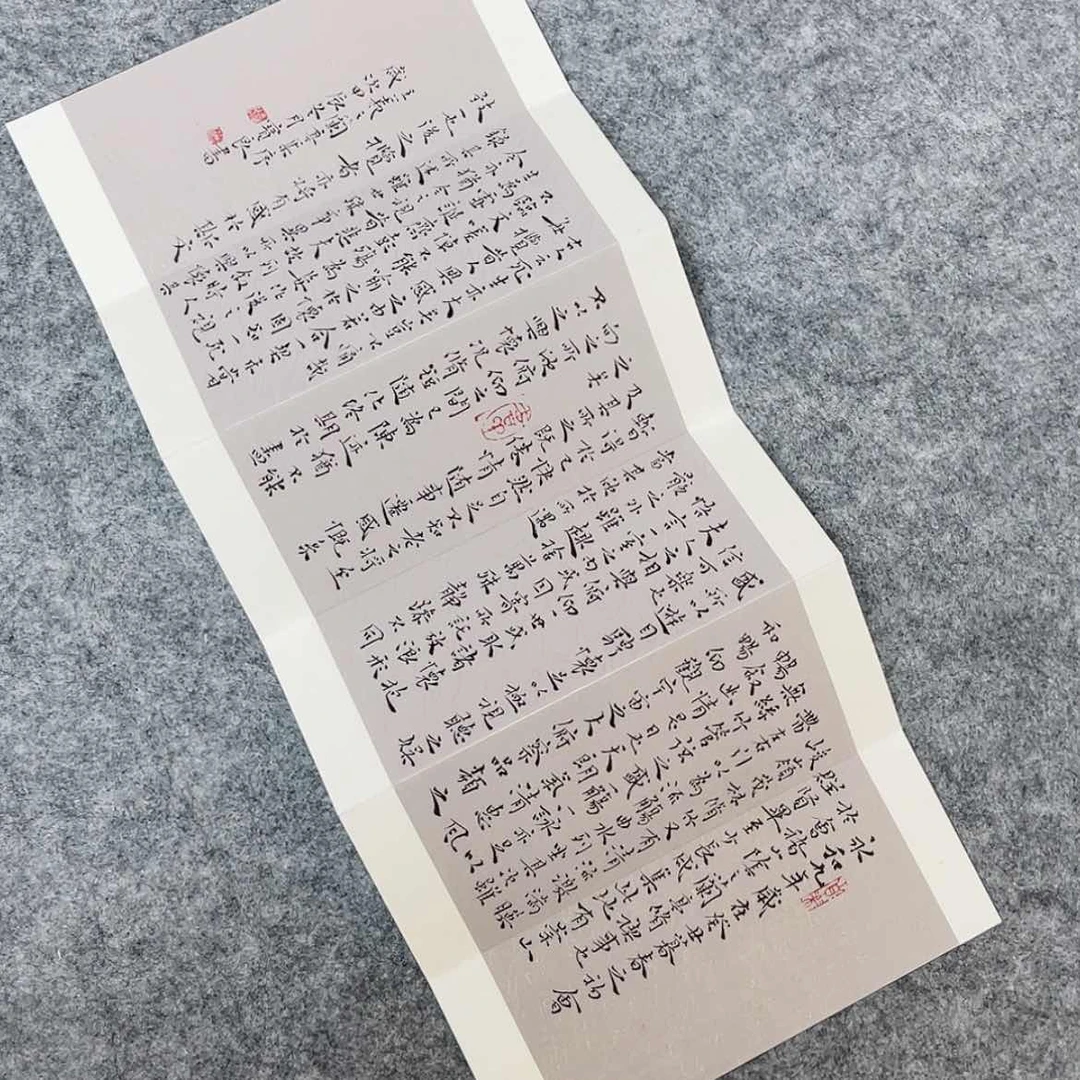 永和九年歲在癸丑暮春之初會
於會稽山陰之蘭亭脩禊事也群
賢畢至少長咸集此地有崇山
峻領茂林脩竹又有清流激湍暎
帶左右引以為流觴曲水列坐其次雖
無絲竹管弦之盛一觴一詠亦足以
暢敘幽情是日也天朗氣清惠風
和暢仰觀宇宙之大俯察品類之
盛所以遊目騁懷足以極視聽之娛
信可樂也夫人之相與俯仰一世或取諸懷抱
悟言一室之內或因寄所託放浪形
骸之外雖趣舍萬殊靜躁不同
當其欣於所遇
暫得於己快然自足不知老之將至
及其所之既惓情隨事遷感慨係
之矣向之所欣俛仰之間已為陳迹猶不能
不以之興懷況脩短隨化終期於盡
古人云死生亦大矣豈不痛哉
每攬昔人興感之由若合一契未嘗
不臨文嗟悼不能喻之於懷固知一死
生為虛誕齊彭殤為妄作後之視
今亦由今之視昔悲夫故列敘時人
錄其所述雖世殊事異所以興懷其
致一也後之攬者亦將有感於斯文
王羲之蘭亭集序
歲次甲辰
書